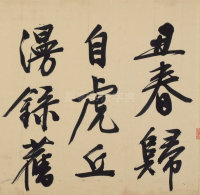 丑春歸
自虎丘
漫錄舊